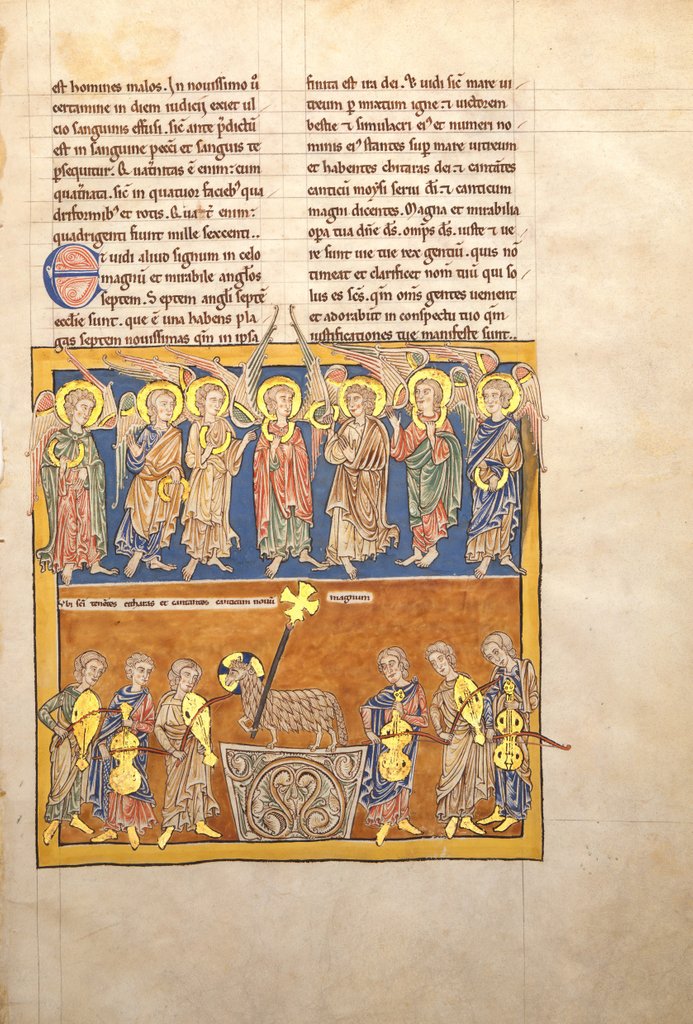 est homines malos. In novissimo ũ
certamine in diem iudicij exiet ul
cio sanguinis effusi. sic̃ ante p̃dictũ
est in sanguine peccĩ et sanguis te
ꝑsequitur. & quat̃nitas ẽ enim: cum
quat̃nata. sic̃ in quatuor facieb᷒ qua
driformib᷒ et rotis. & ua t̃ enim:
quadrigenti fiunt mille sexcenti..
Et vidi aliud signum in celo
magnũ et mirabile anglos
septem. Septem angli septẽ
ecclie sunt. que ẽ una habens pla
gas septem novissimas qm̃ in ipsa
finita est ira dei. & vidi sic̃ mare vi
treum ꝑmixtum igne ⁊ victorem
bestie ⁊ simulacri ei᷒ et numeri no
minis ei᷒ stantes suꝑ mare vitreum
et habentes chitaras dei: ⁊ cantãtes
canticũ moysi servi dĩ: ⁊ canticum
magni dicentes. Magna et mirabilia
opa tua dñe ds̃. omp̃s ds̃. iuste ⁊ ve
re sunt vie tue rex gentiũ. quis nõ
timeat et clarificet nom̃ tuũ qui so
lus es scs̃. qm̃ oms̃ gentes venient
et adorabunt in conspectu tuo qm̃
iustificationes tue manifeste sunt..
Vbi scĩ tenẽtes citharas et cantantes canticum novũ magnum